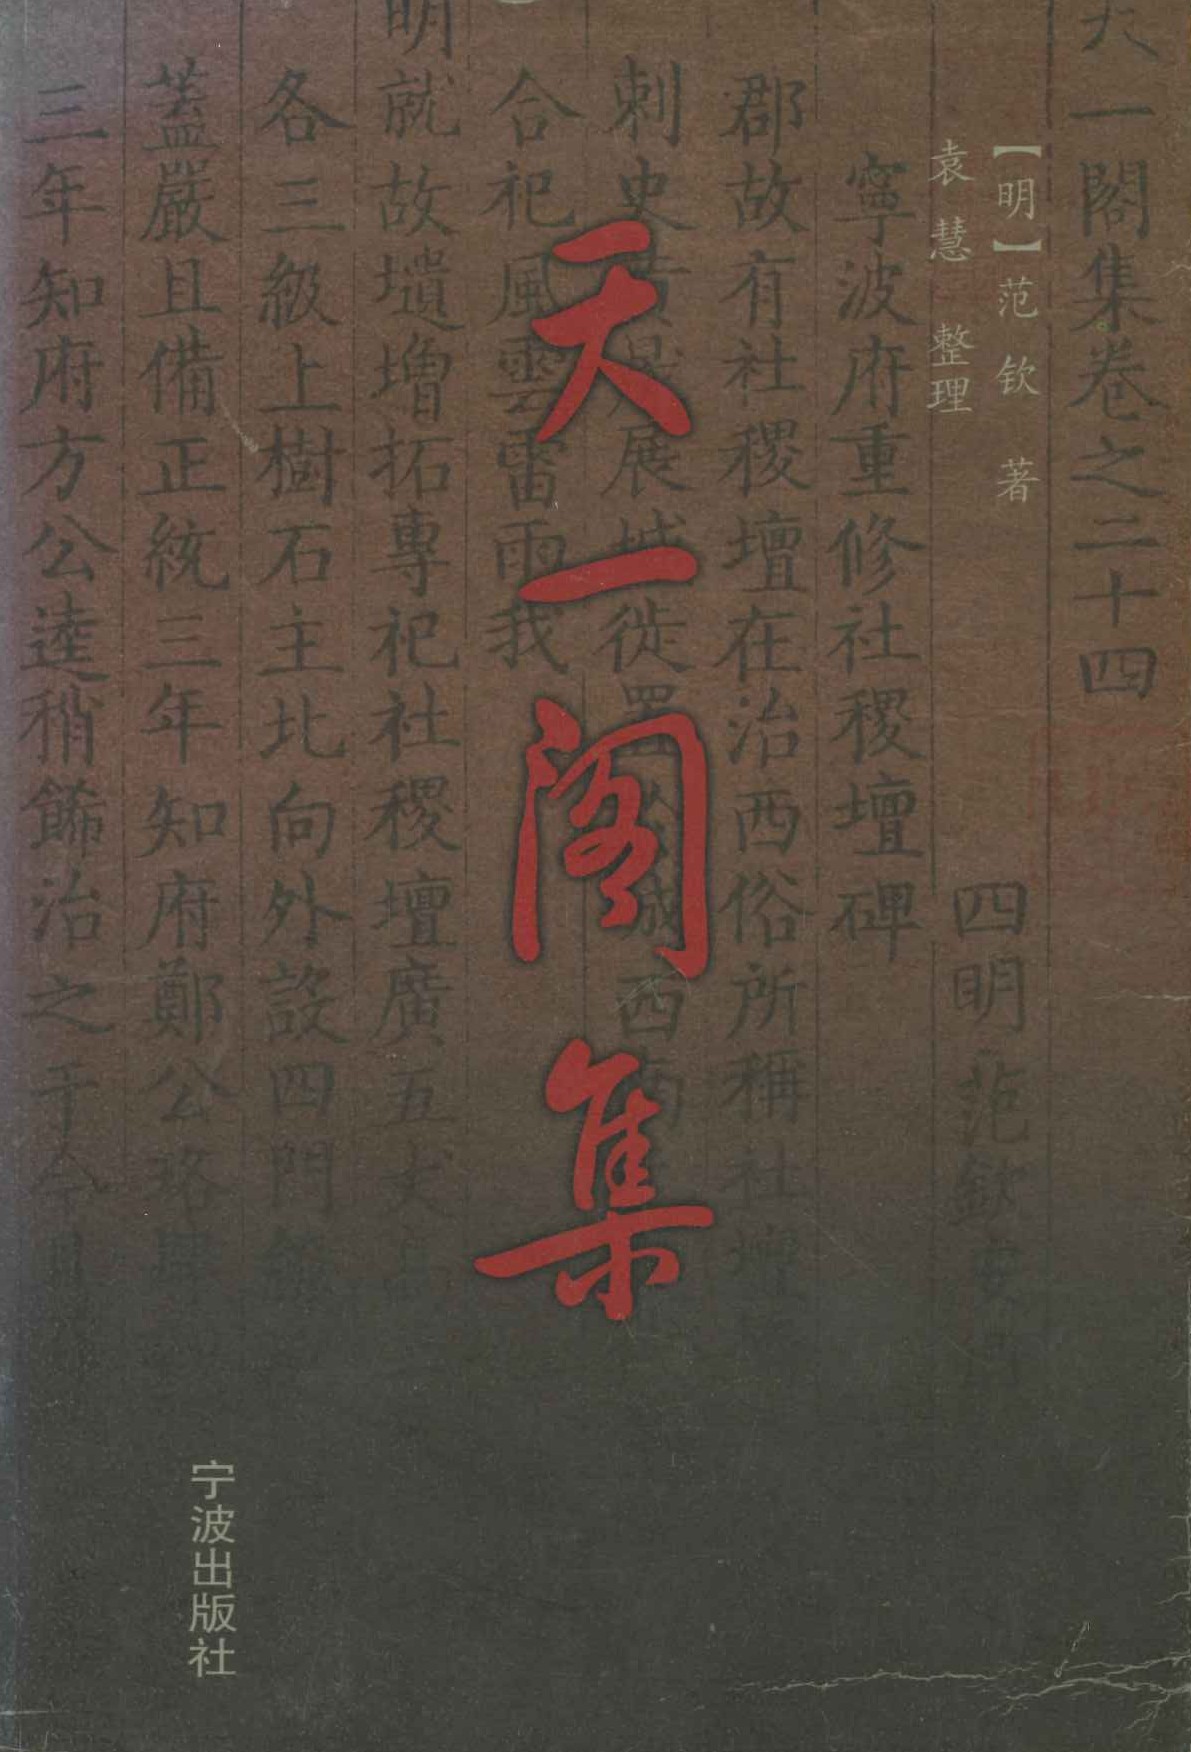 天一閣集
【明】范钦 著
袁慧 整理
宁波出版社
天一閣集卷之二十四
四明范欽
寧波府重修社稷壇碑
郡故有社稷壇在治西俗所稱社壇
刺史黃晟展城徙置城西南
合祀風雲雷雨我
明就故壝增拓專祀社稷壇廣五丈
各三級上樹石主北向外設四門
蓋嚴且備正統三年知府鄭公珞
三年知府方公逵稍餙治之于今